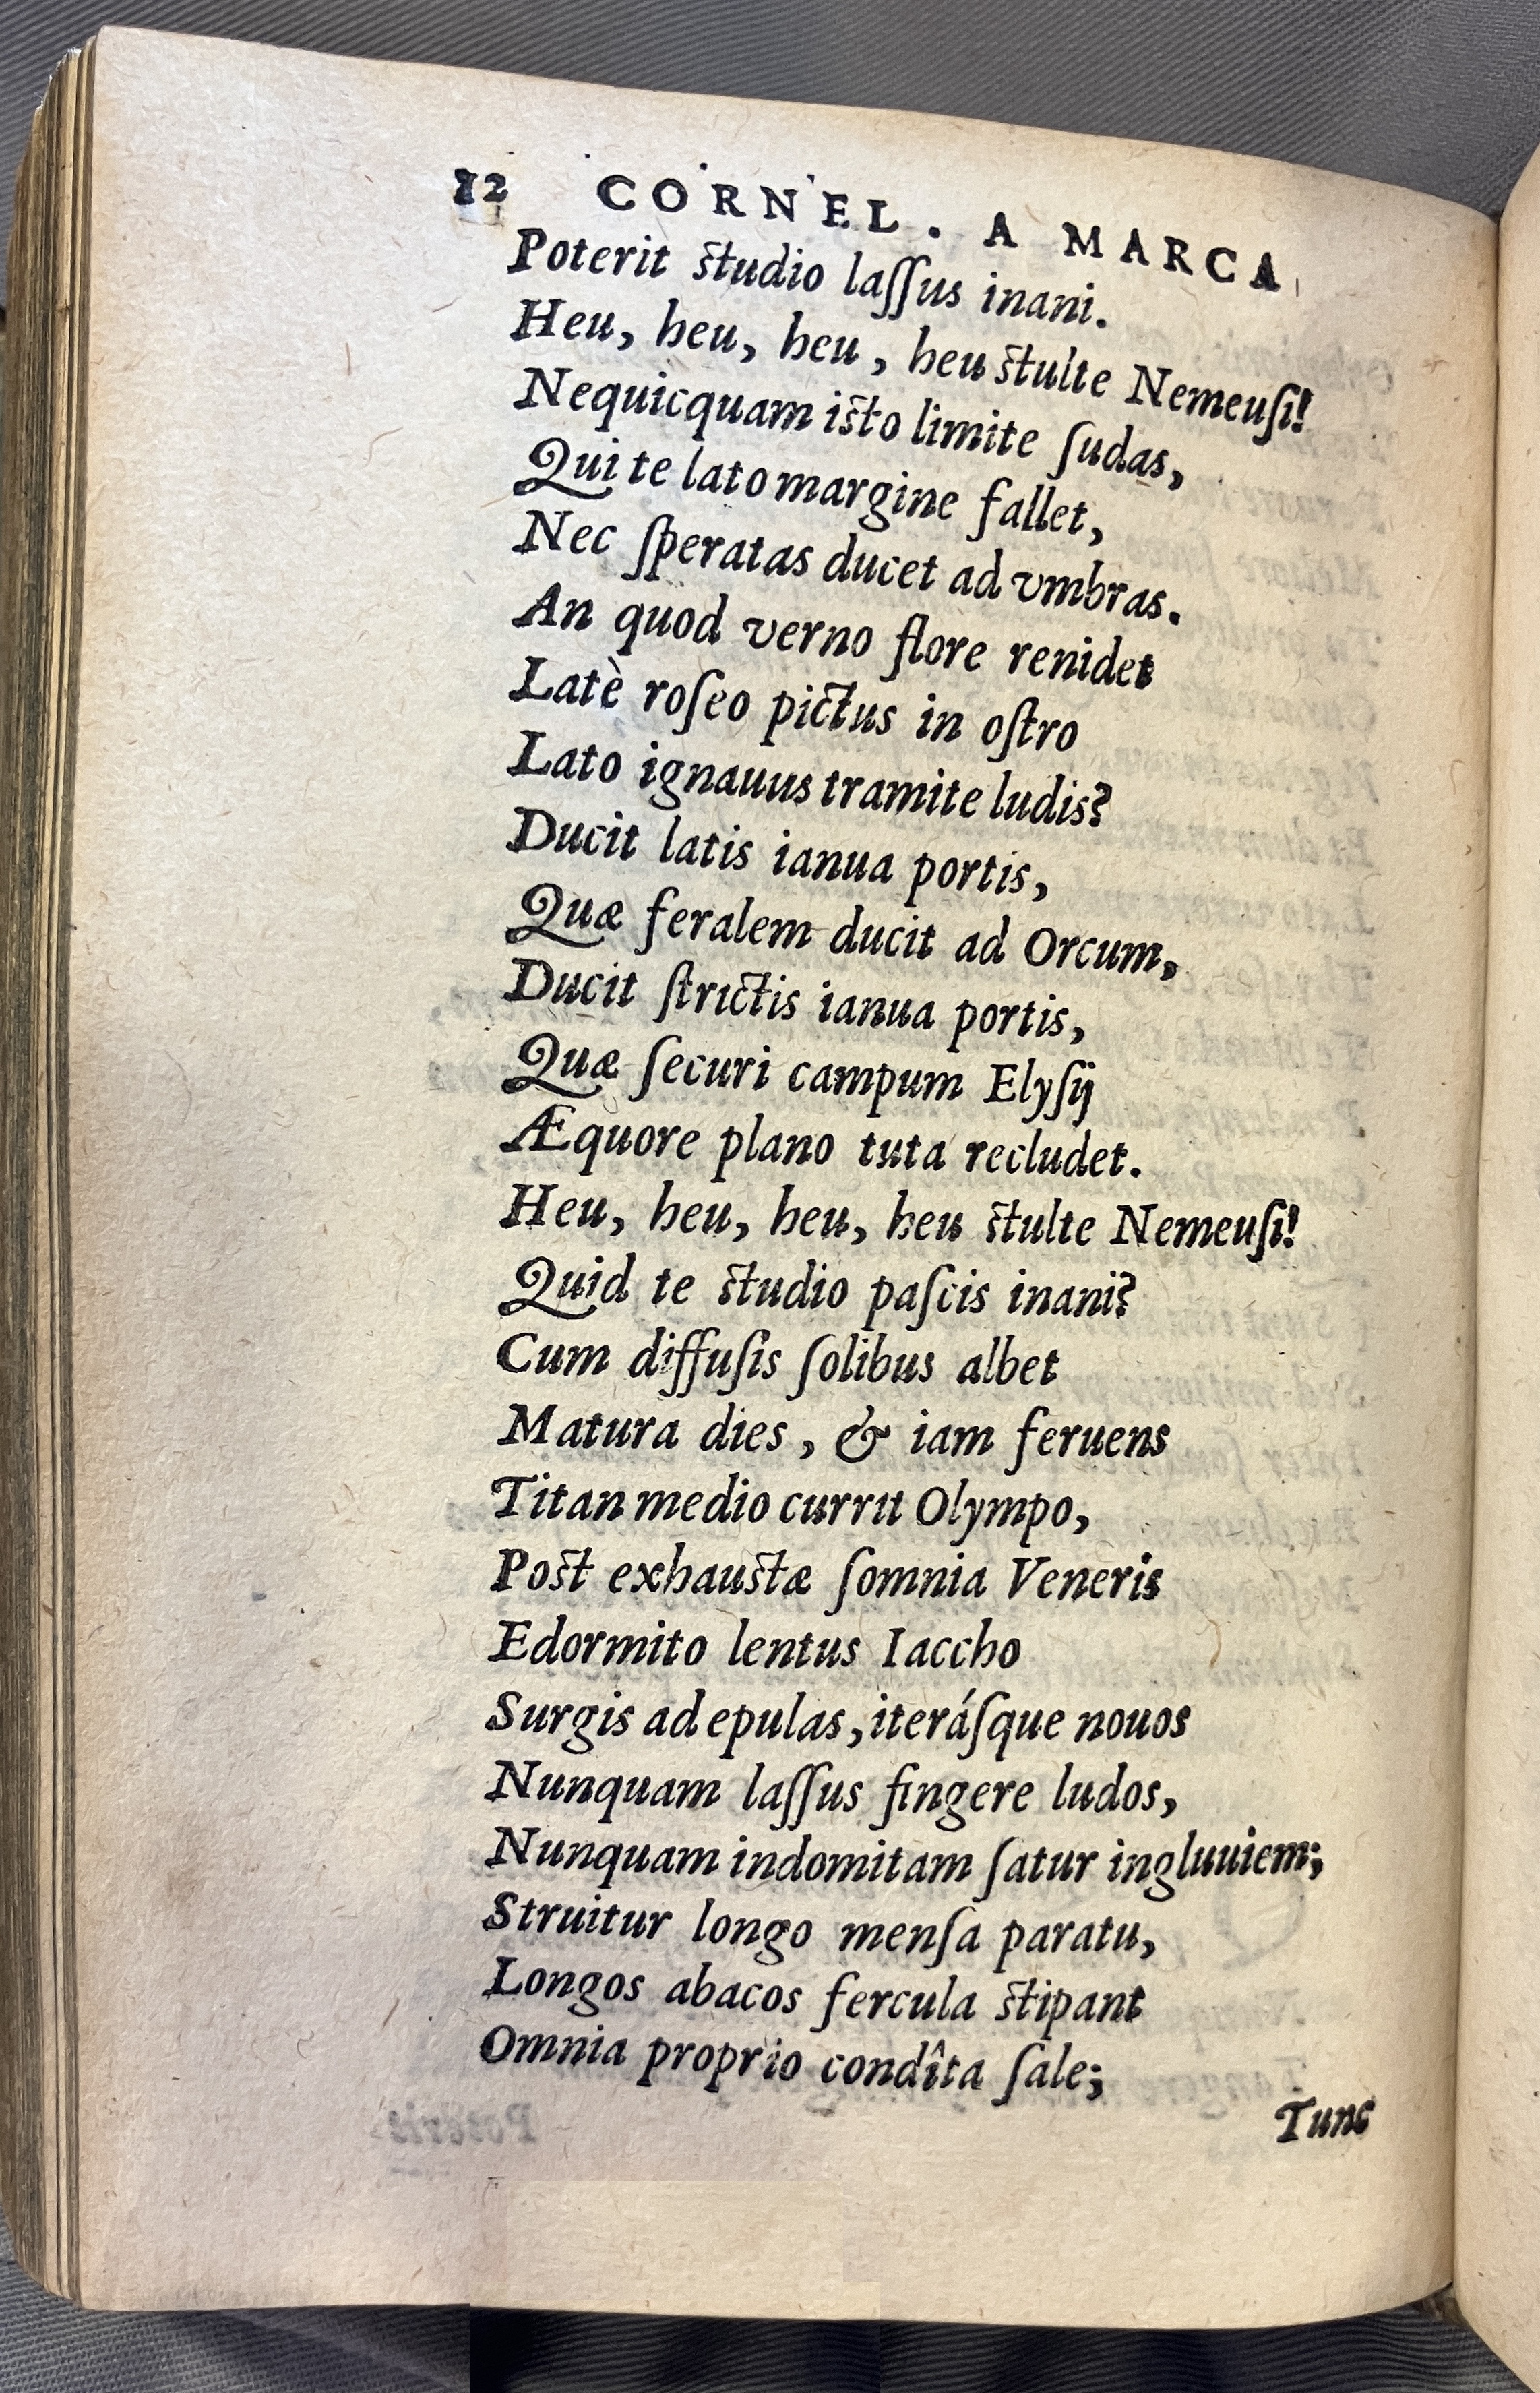 12 CORNEL. A MARCA
Poterit studio lassus inani.
Heu, heu, heu, heu stulte Nemeusi!
Nequicquam isto limite sudas,
Qui te lato margine fallet,
Nec speratas ducet ad vmbras.
An quod verno flore renidet
Latè roseo pictus in ostro
Lato ignauus tramite ludis?
Ducit latis ianua portis,
Quæ feralem ducit ad Orcum,
Ducit strictis ianua portis,
Quæ securi campum Elysij
Æquore plano tuta recludet.
Heu, heu, heu, heu stulte Nemeusi!
Quid te studio pascis inani?
Cum diffusis solibus albet
Matura dies, & iam feruens
Titan medio currit Olympo,
Post exhaustæ somnia Veneris
Edormito lentus Iaccho
Surgis ad epulas, iterásque nouos
Nunquam lassus fingere ludos,
Nunquam indomitam satur ingluuiem;
Struitur longo mensa paratu,
Longos abacos fercula stipant
Omnia proprio condîta sale;
Tunc